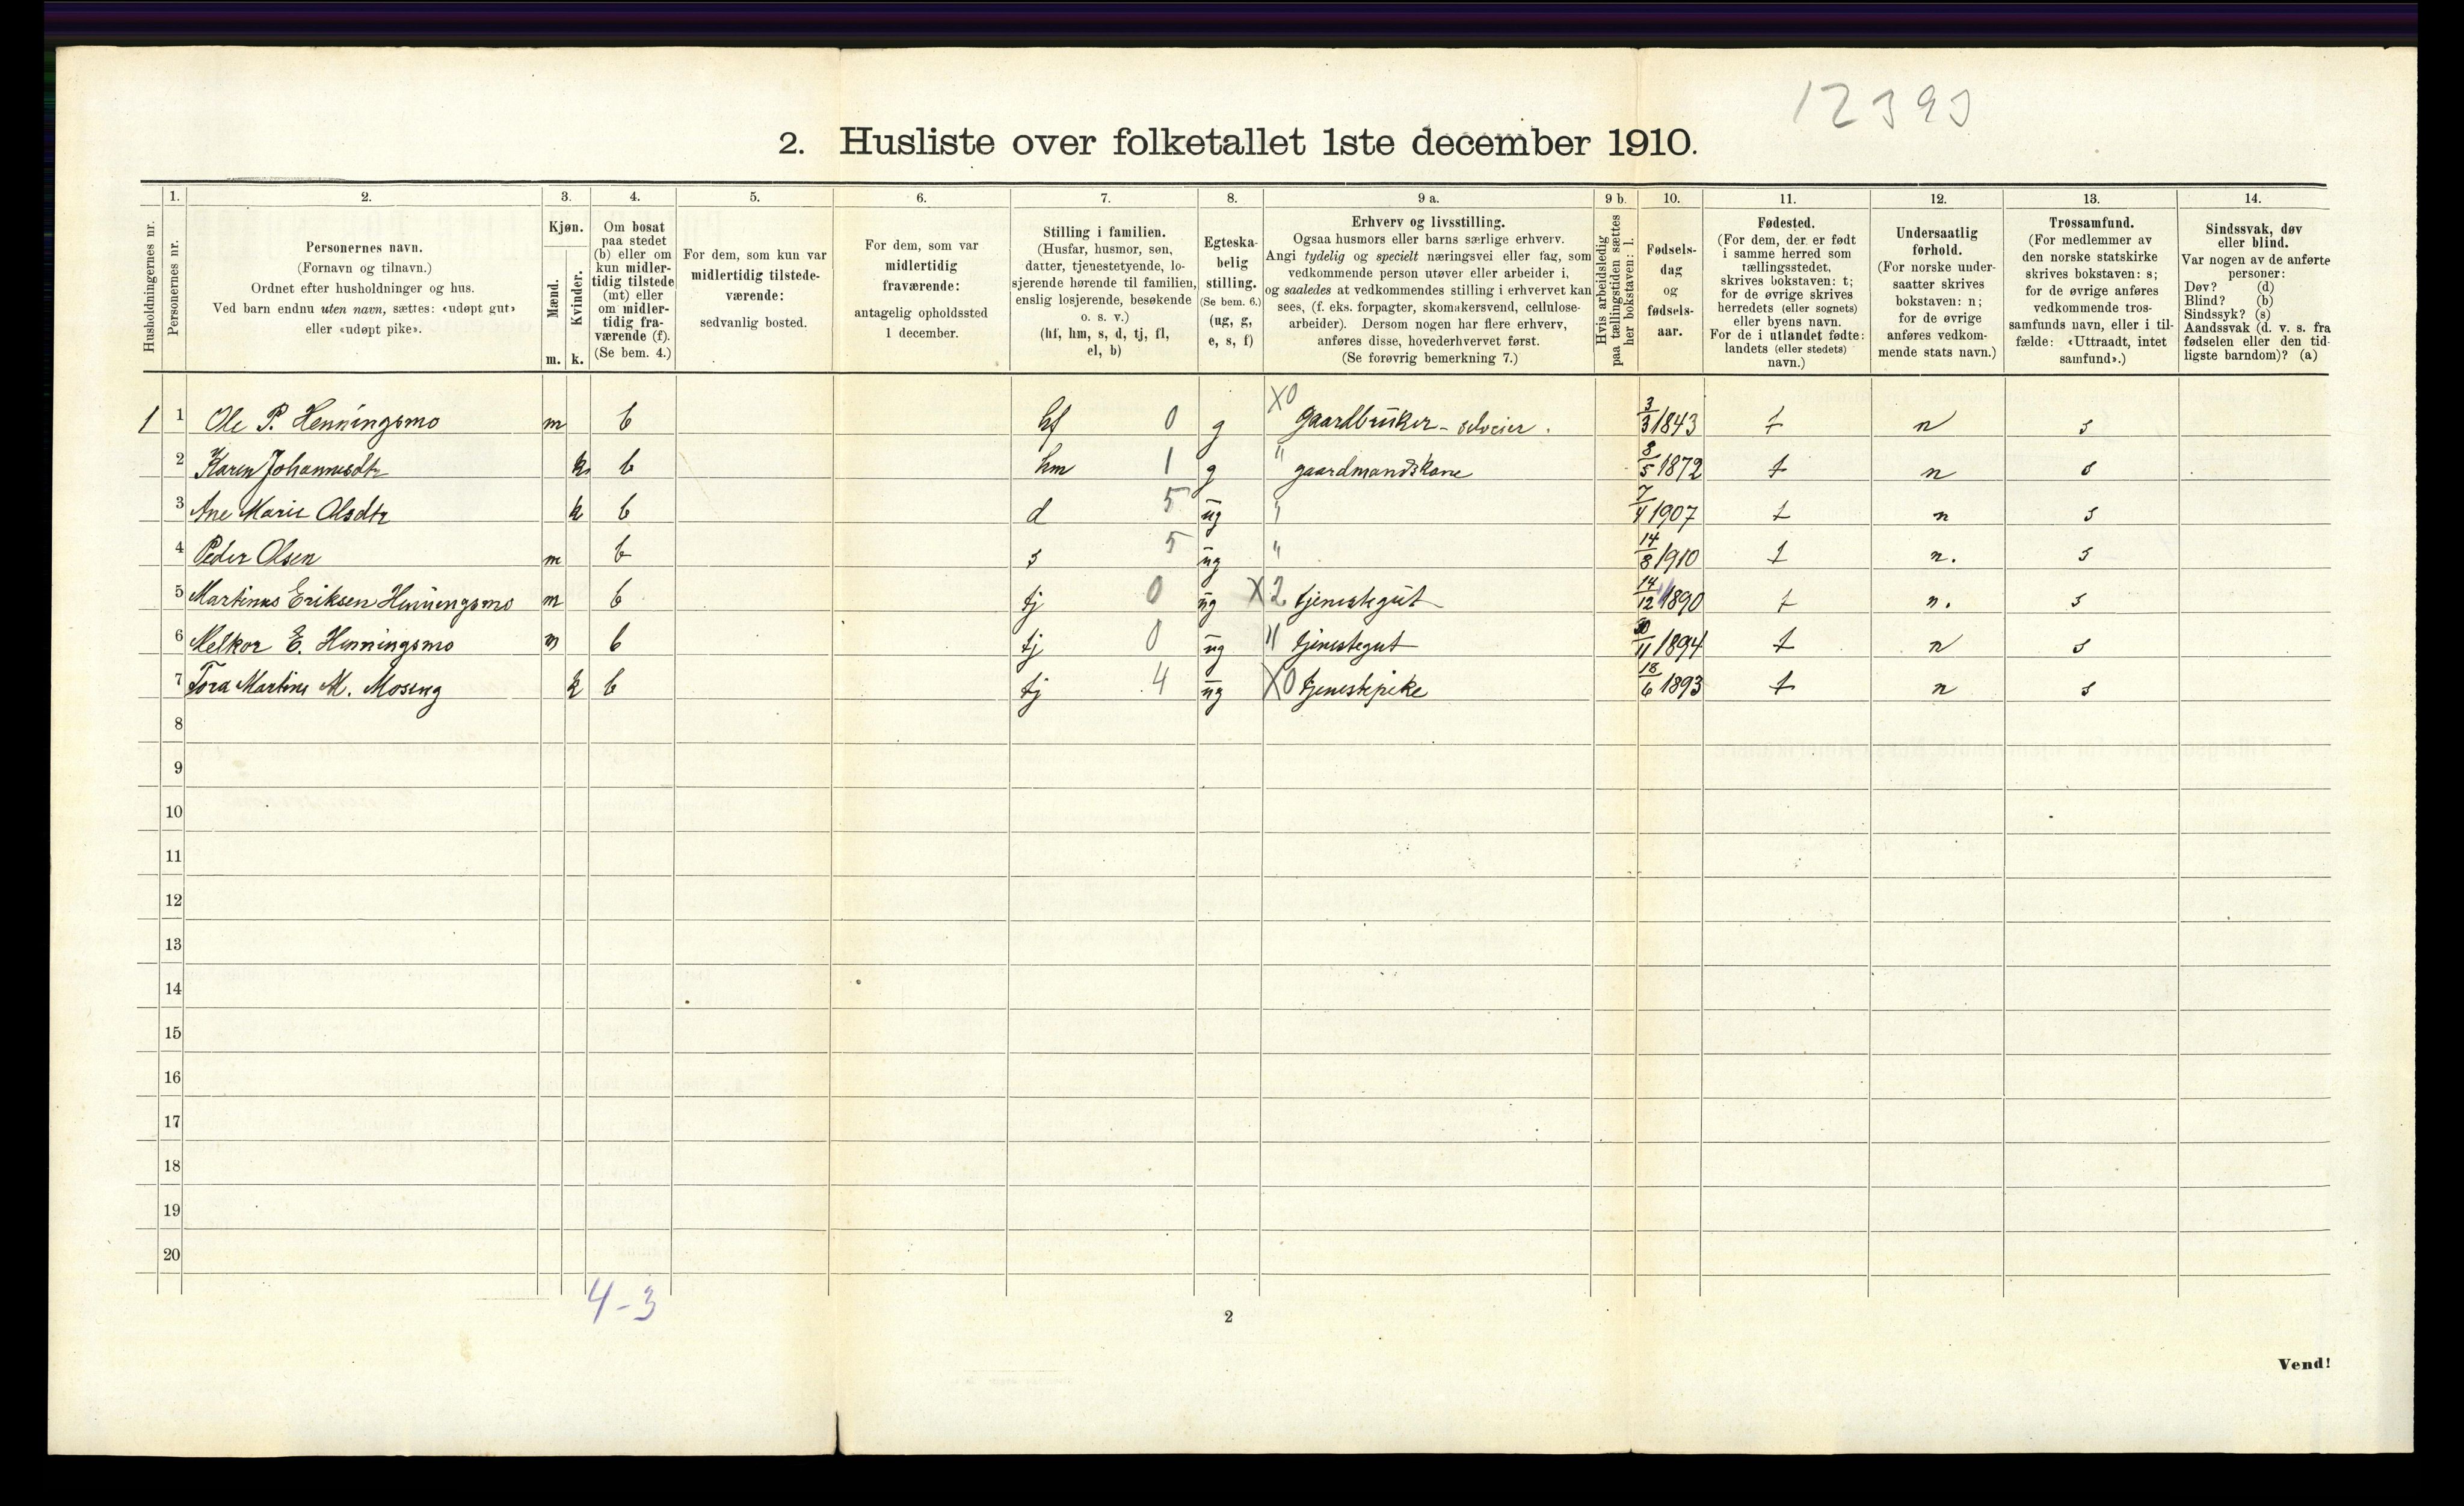 12393
2. Husliste over folketallet 1ste december 1910.
1. 2. 3. 4. 5. 6. 7. 8. 9 a. 9 b. 10. 11. 12. 13. 14.
Husholdningernes nr.
Personernes nr.
Personernes navn.
(Fornavn og tilnavn.)
Ordnet efter husholdninger og hus.
Ved barn endnu uten navn, sættes: «udøpt gut»
eller «udøpt pike».
Kjøn.
Mænd.
Kvinder.
m. k.
Om bosat
paa stedet
(b) eller om
kun midler-
tidig tilstede
(mt) eller
om midler-
tidig fra-
værende (f).
(Se bem. 4.)
For dem, som kun var
midlertidig tilstede-
værende:
sedvanlig bosted.
For dem, som var
midlertidig
fraværende:
antagelig opholdssted
1 december.
Stilling i familien.
(Husfar, husmor, søn,
datter, tjenestetyende, lo-
sjerende hørende til familien,
enslig losjerende, besøkende
o. s. v.)
(hf, hm, s, d, tj, fl,
el, b)
Egteska-
belig
stilling.
(Se bem. 6.)
(ug, g,
e, s, f)
Erhverv og livsstilling.
Ogsaa husmors eller barns særlige erhverv.
Angi tydelig og specielt næringsvei eller fag, som
vedkommende person utøver eller arbeider i,
og saaledes at vedkommendes stilling i erhvervet kan
sees, (f. eks. forpagter, skomakersvend, cellulose-
arbeider). Dersom nogen har flere erhverv,
anføres disse, hovederhvervet først.
(Se forøvrig bemerkning 7.)
Hvis arbeidsledig
paa tællingstiden sættes
her bokstaven: l.
Fødsels-
dag
og
fødsels-
aar.
Fødested.
(For dem, der er født
i samme herred som
tællingsstedet,
skrives bokstaven: t;
for de øvrige skrives
herredets (eller sognets)
eller byens navn.
For de i utlandet fødte:
landets (eller stedets)
navn.)
Undersaatlig
forhold.
(For norske under-
saatter skrives
bokstaven: n;
for de øvrige
anføres vedkom-
mende stats navn.)
Trossamfund.
(For medlemmer av
den norske statskirke
skrives bokstaven: s;
for de øvrige anføres
vedkommende tros-
samfunds navn, eller i til-
fælde: «Uttraadt, intet
samfund».)
Sindssvak, døv
eller blind.
Var nogen av de anførte
personer:
Døv? (d)
Blind? (b)
Sindssyk? (s)
Aandssvak (d. v. s. fra
fødselen eller den tid-
ligste barndom)? (a)
1 1 Ole P. Henningsmo m b hf 0 g X0 gaardbruker - selveier. 3/3 1843 t n s
2 Karen Johannesdtr k b hm 1 g " gaardmandskone 8/5 1872 t n s
3 Ane Marie Olsdtr k b d 5 ug " 7/4 1907 t n s
4 Peder Olsen m b s 5 ug " 14/8 1910 t n. s
5 Martinus Eriksen Henningsmo m b tj 0 ug X2 tjenestegut 14/12 1890 t n. s
6 Melkor E. Henningsmo m b tj 0 ug " tjenestegut 30/11 1894 t n s
7 Tora Martine M. Moseng k b tj 4 ug X0 tjenestepike 18/6 1893 t n s
8
9
10
11
12
13
14
15
16
17
18
19
20
4-3
2
Vend!